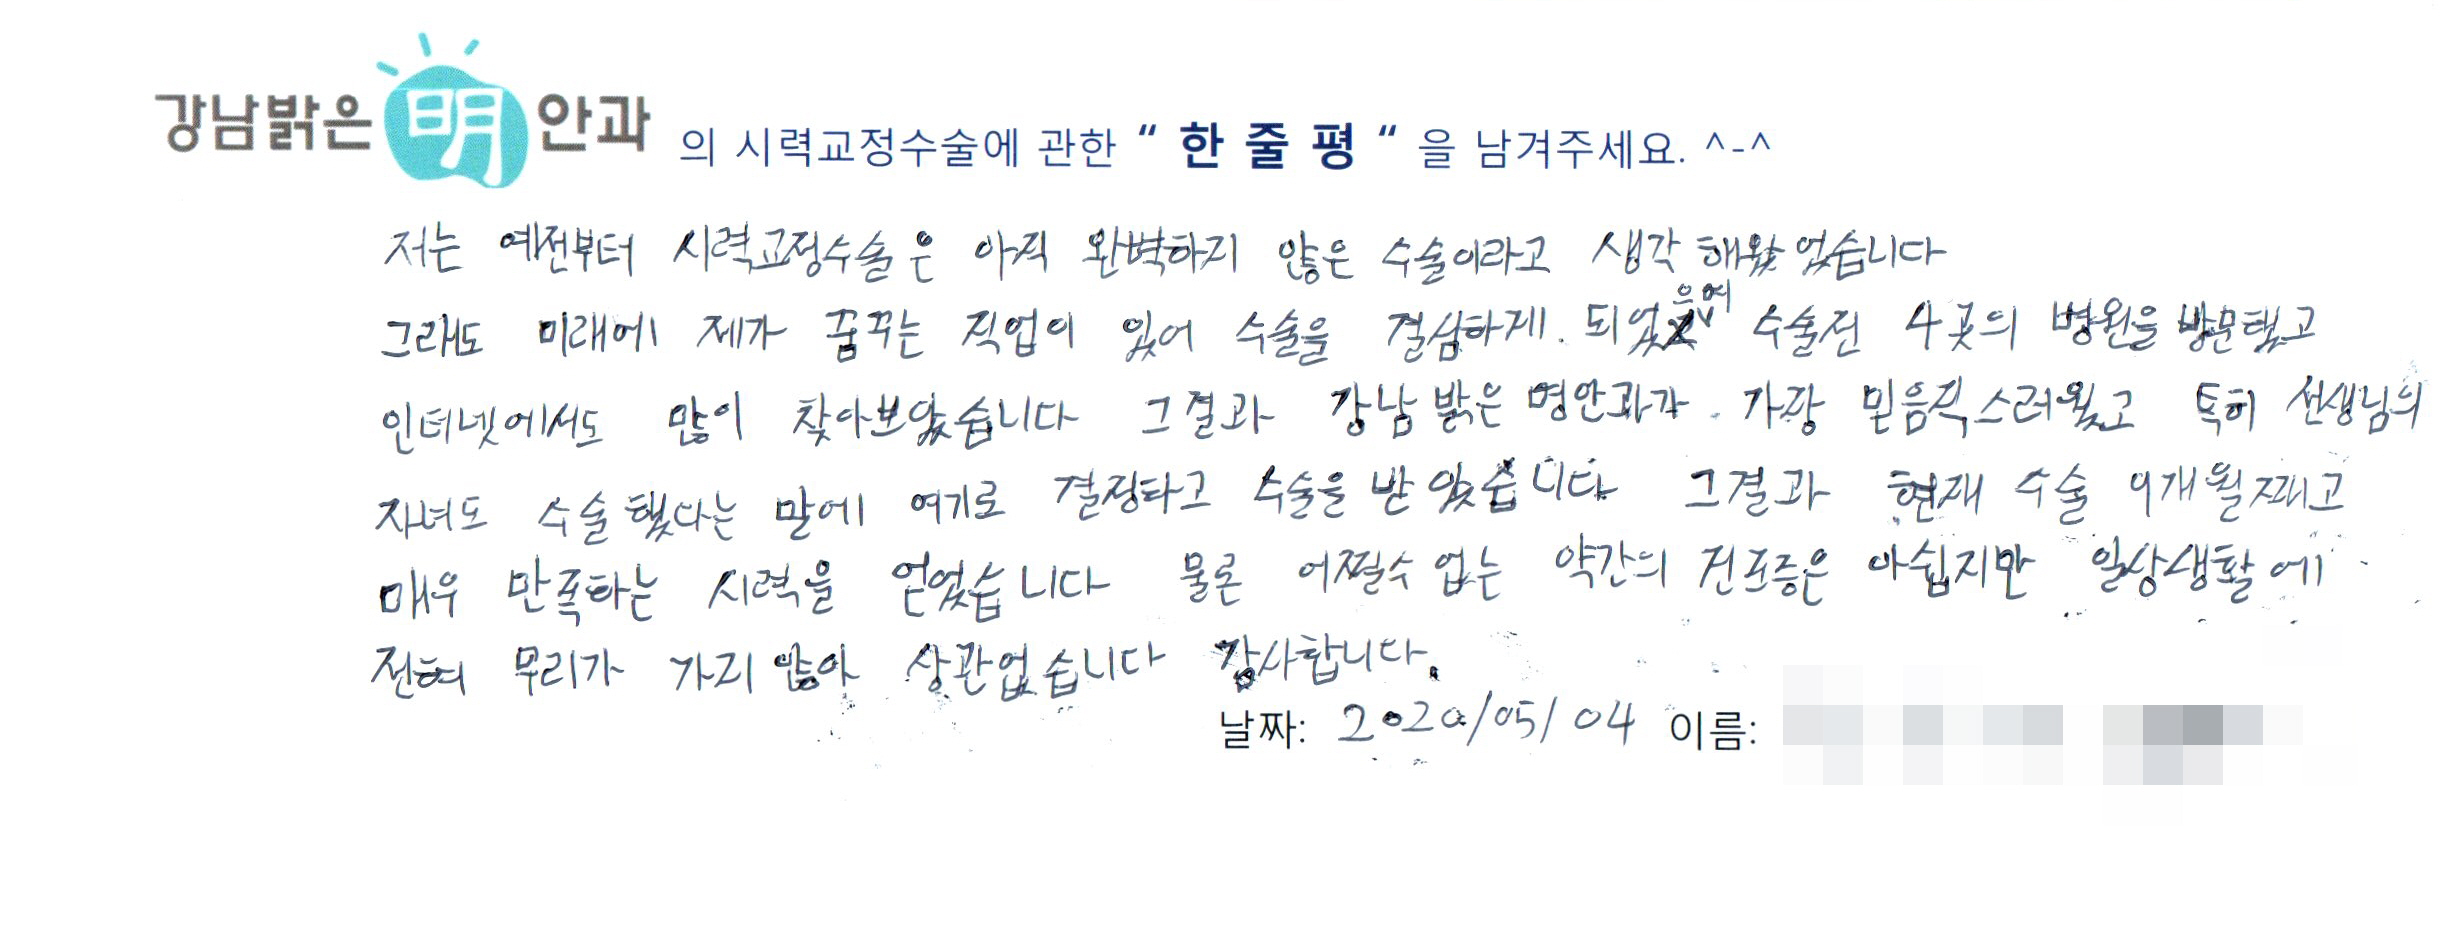 강남밝은 明 안과 의 시력교정수술에 관한 “ 한 줄 평 “ 을 남겨주세요. ^-^
저는 예전부터 시력교정수술은 아직 완벽하지 않은 수술이라고 생각해왔었습니다
그래도 미래에 제가 꿈꾸는 직업이 있어 수술을 결심하게 되었으며 수술전 4곳의 병원을 방문했고
인터넷에서도 많이 찾아보았습니다 그결과 강남밝은명안과가 가장 믿음직스러웠고 특히 선생님의
자녀도 수술했다는 말에 여기로 결정하고 수술을 받았습니다 그결과 현재 수술 9개월째고
매우 만족하는 시력을 얻었습니다 물론 어쩔수없는 약간의 건조증은 아쉽지만 일상생활에
전혀 무리가 가지않아 상관없습니다 감사합니다.
날짜: 2020/05/04 이름: